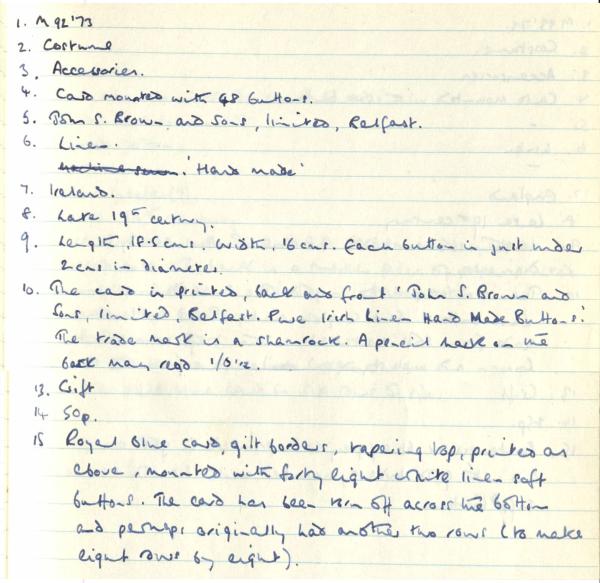 1. M 92'73
2. Costume
3. Accessories.
4. Card mounted with 48 buttons.
5. John S. Brown and Sons, limited, Belfast.
6. Linen.
Machine sewn. 'Hand made'
7. Ireland.
8. Late 19th century.
9. Length, 18.5 cms. Width, 16 cms. Each button is just under
2 cms in diameter.
10. The card is printed, back and front 'John S. Brown and
Sons, limited, Belfast. Pure Irish Linen Hand Made Buttons.'
The trade mark is a shamrock. A pencil mark on the
back may read '1/0½.
13. Gift
14 50p.
15 Royal blue card, gilt borders, tapering top, printed as
above, mounted with forty eight white linen soft
buttons. The card has been torn off across the bottom
and perhaps originally had another two rows (to make
eight rows by eight).